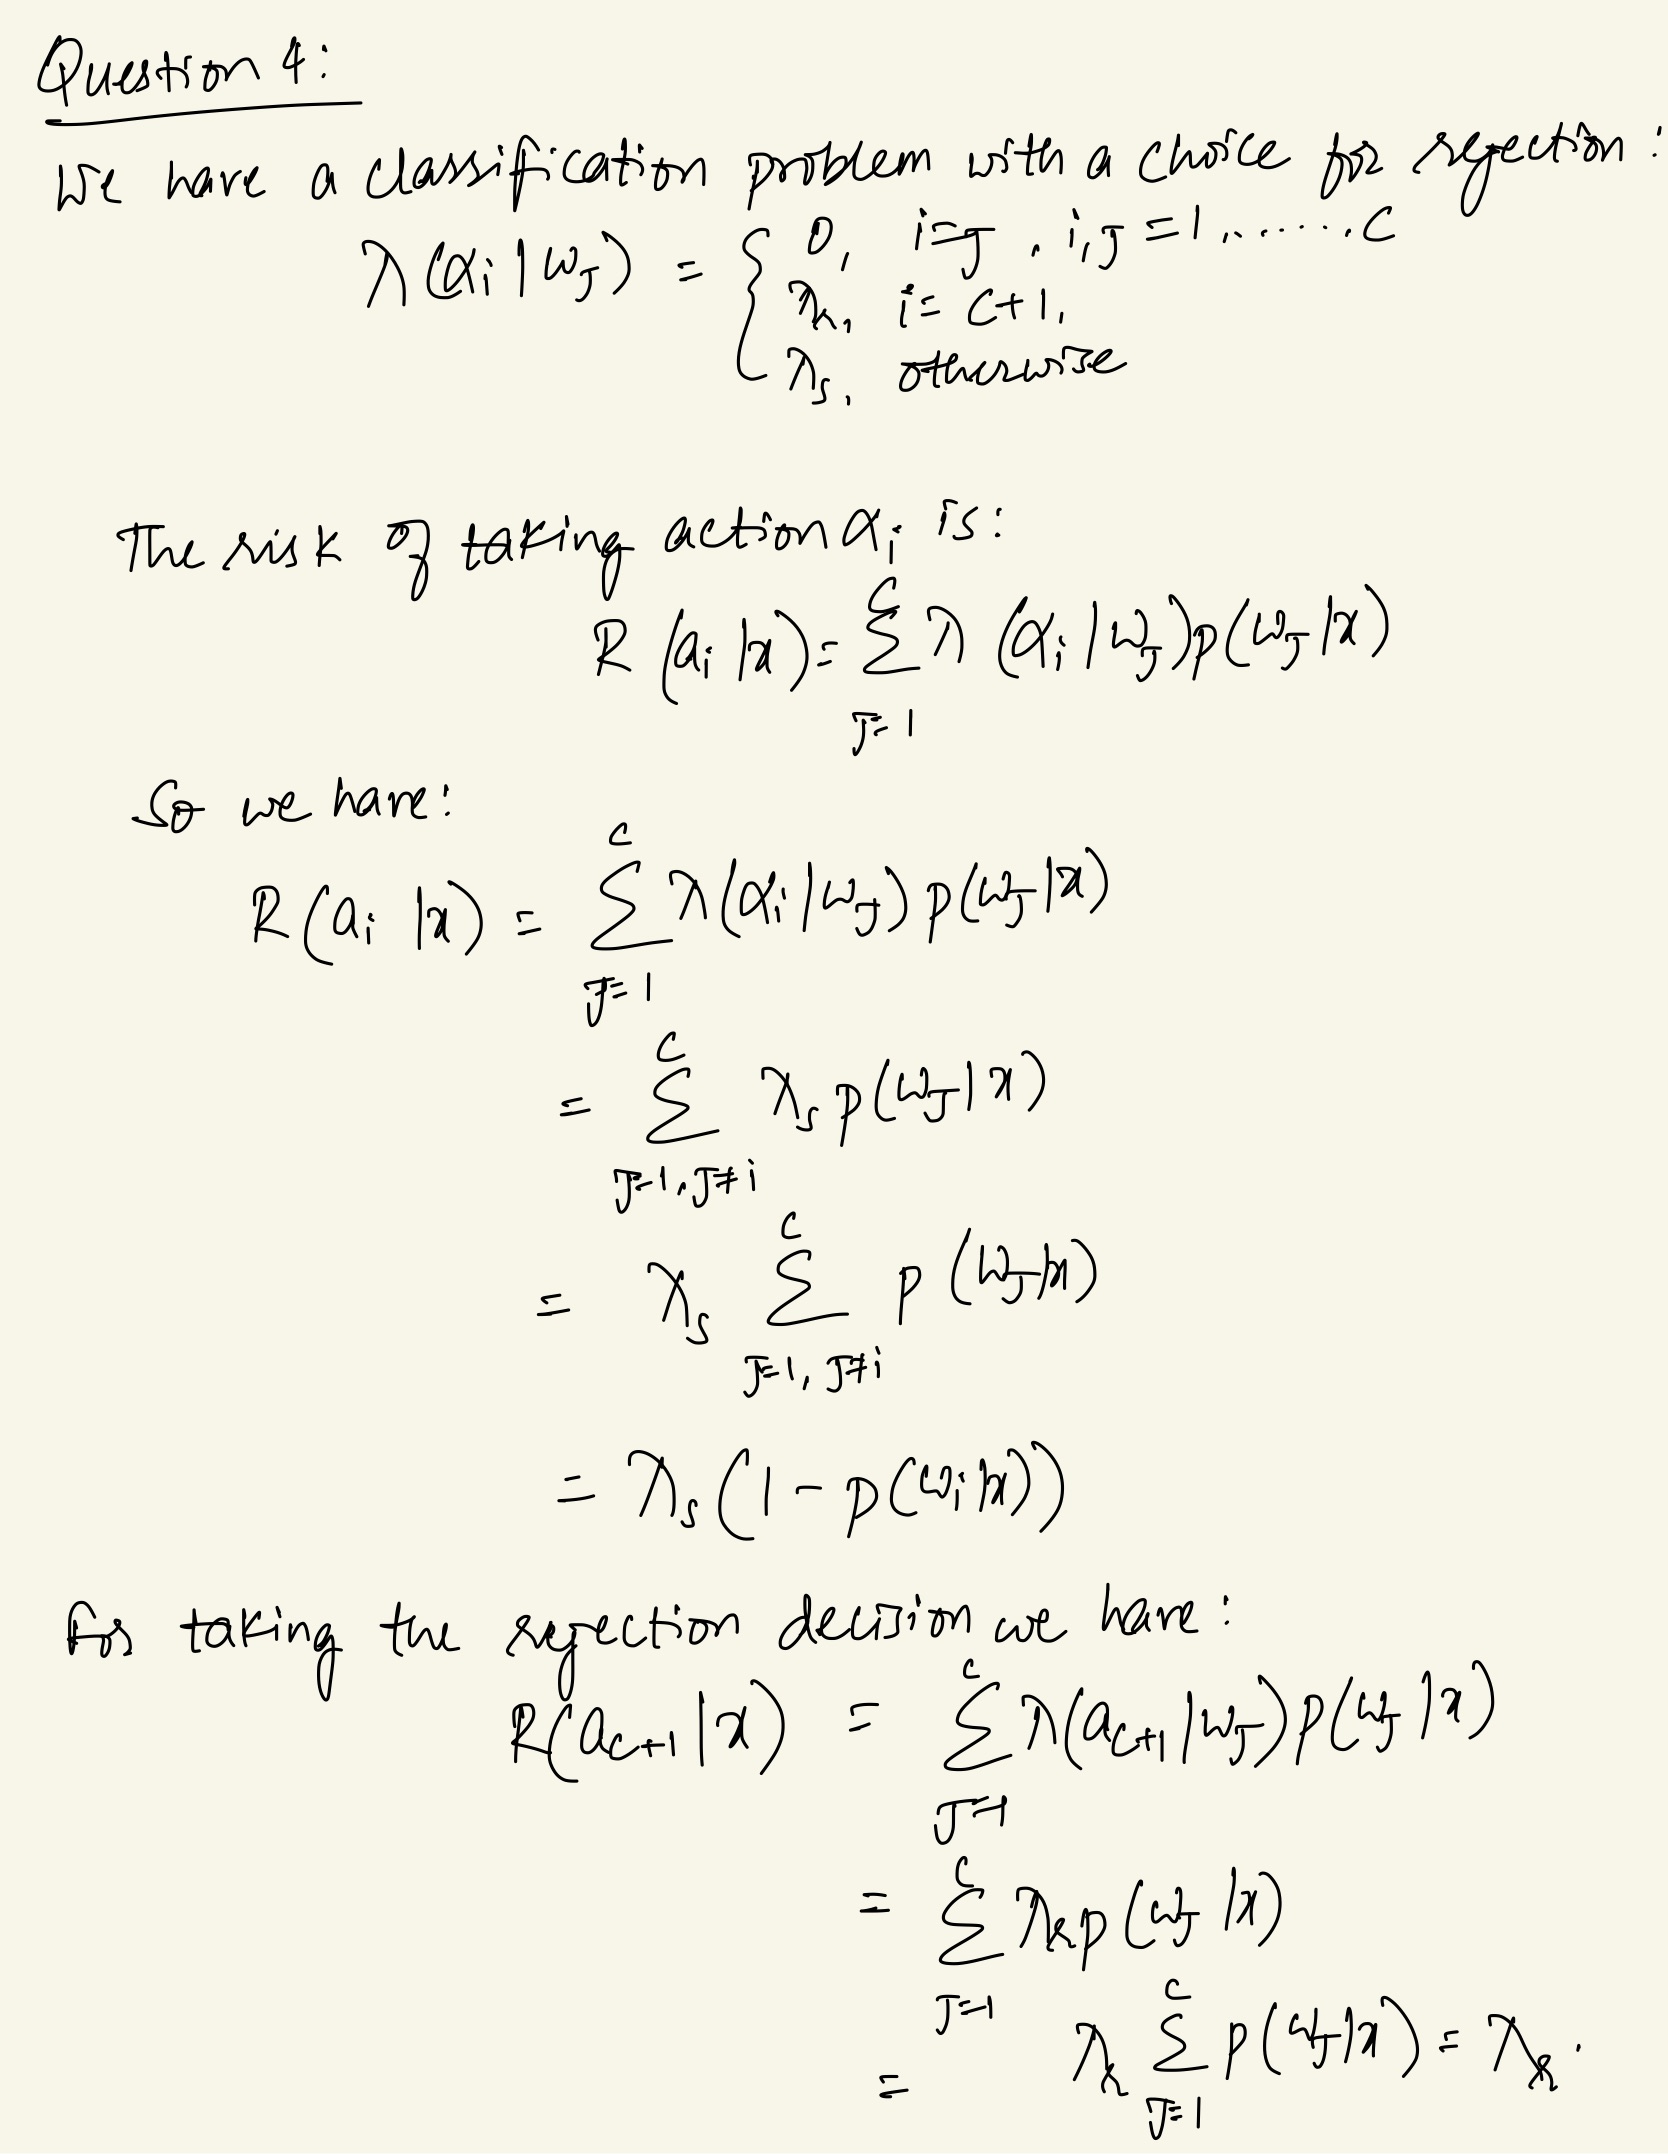 Question 4:
We have a classification problem with a choice for rejection:
λ(αi | ωJ) = { 0, i=J, i,J = 1, ......, C
λr, i= C+1,
λs, otherwise
The risk of taking action αi is:
R(ai |x) = Σ_{J=1}^{C} λ(αi | ωJ) p(ωJ |x)
So we have:
R(ai |x) = Σ_{J=1}^{C} λ(αi | ωJ) p(ωJ |x)
= Σ_{J=1, J≠i}^{C} λs p(ωJ | x)
= λs Σ_{J=1, J≠i}^{C} p(ωJ |x)
= λs(1 - p(ωi |x))
For taking the rejection decision we have:
R(ac+1 | x) = Σ_{J=1}^{C} λ(ac+1 | ωJ) p(ωJ |x)
= Σ_{J=1}^{C} λr p(ωJ |x)
= λr Σ_{J=1}^{C} p(ωJ |x) = λr.